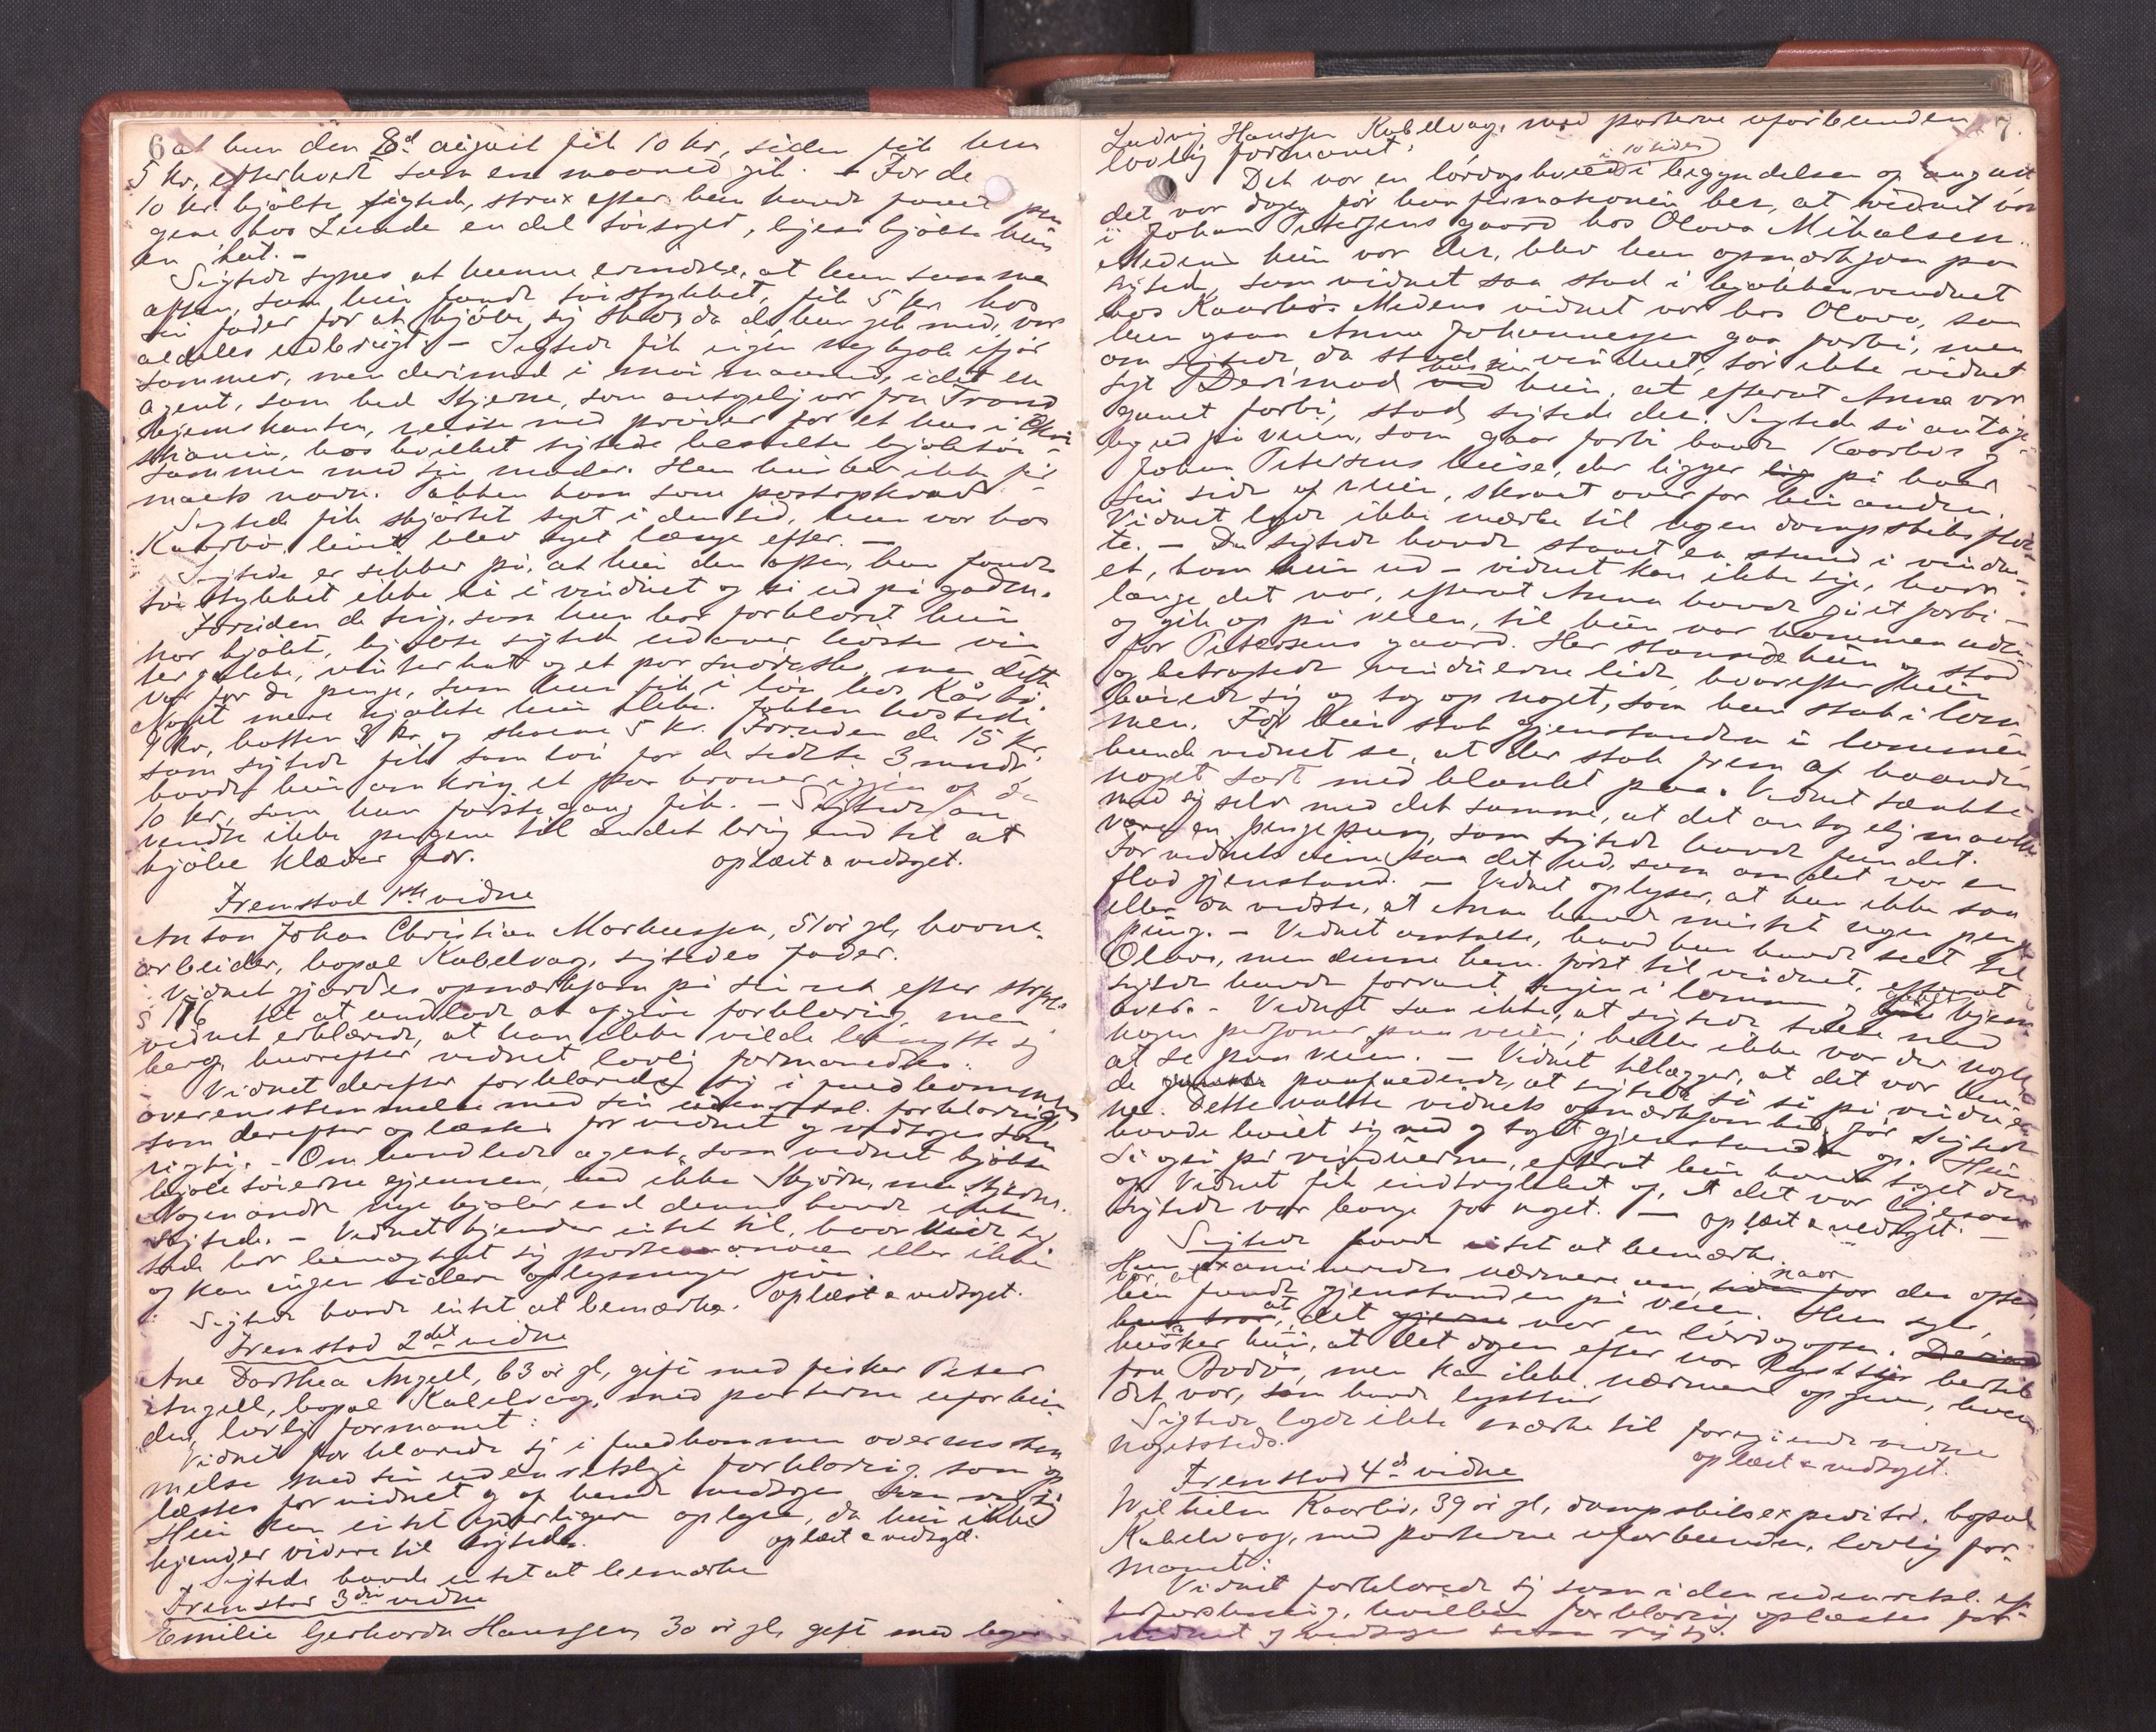 6 at hun den 8de august fik 10 kr, siden fik hun
5 kr, efterhvert som en maaned gik. - For de
10 kr. kjøbte sigtede, strax efter hun havde faaet pen
gene hos Lunde en del tøisager, ligesaa kjøbte hun
en hat. -
Sigtede synes at kunne erindre, at hun samme
aften, som hun fandt tøistykket, fik 5 kr hos
sin fader for at kjøbe sig sko, da de hun gik med, var
aldeles udbrugt. - Sigtede fik ingen ny kjole ifjor
sommer, men derimod i mai maaned, idet en
agent, som hed Stjerne, som antagelig var fra Trond
hjemskanten, reiste med prøver for et hus i Chri
stiania, hos hvilket sigtede bestilte kjoletøi
sammen med sin moder. Hun husker ikke fir
maets navn. Pakken kom som postopkrav.
Sigtede fik skjørtet syet i den tid, hun var hos
Kaarbø, livet blev syet længe efter. -
Sigtede er sikker på, at hun den aften, hun fandt
tøistykket ikke lå i vinduet og så ud på gaden.
Foruden de ting, som hun har forklaret hun
har kjøbt, kjøbte sigtede udover høsten vin
terjakke, vinterhat og et par snøresko, men dette
var for de penge, som hun fik i løn hos Kårbø.
Noget mere kjøbte hun ikke. Jakken kostede
9 kr, hatten 3 kr og skoene 5 kr. Foruden de 15 kr,
som sigtede fik som løn for de sidste 3 mndr.
havde hun omkring et par kroner igjen af de
10 kr, som hun første gang fik. - Sigtede an
vendte ikke pengene til andet brug end til at
kjøbe klæder for. oplæst & vedtaget.
Fremstod 1ste vidne
Anton Johan Christian Markussen, 51 år gl, havne-
arbeider, bopæl Kabelvag, sigtedes fader.
Vidnet gjordes opmærksom på sin ret efter strprl.
§ 176 til at undlade at afgive forklaring, men
vidnet erklærede, at han ikke vilde benytte sig
heraf, hvorefter vidnet lovlig formanedes.
Vidnet derefter forklarede sig i fuldkommen
overensstemmelse med sin udenretsl. forklaring
som derefter oplæstes for vidnet og vedtoges som
rigtig. - Omhandlede agent, som vidnet kjøbte
kjoletøierne gjennem, hed ikke Skjørn, men Stjerne.
Nogen andre nye kjoler end denne havde ikke
sigtede. - Vidnet kjender intet til, hvorvidt sig
tede har bemægtiget sig portemonæen eller ikke
og kan ingen videre oplysninger give.
Sigtede havde intet at bemærke. Oplæst & vedtaget.
Fremstod 2det vidne
Ane Dorthea Angell, 63 år gl, gift med fisker Peter
Angell, bopæl Kabelvag, med parterne uforbun
den, lovlig formanet:
Vidnet forklarede sig i fuldkommen overensstem
melse med sin udenretslige forklaring, som op
læstes for vidnet og af hende vedtoges som rigtig
Hun kan intet yderligere oplyse, da hun ikke
kjender videre til sigtede. oplæst & vedtaget.
Sigtede havde intet at bemærke
Fremstod 3die vidne
Emilie Gerharda Hanssen, 30 år gl, gift med
Ludvig Hanssen Kabelvag, med parterne uforbunden 7.
lovlig formanet:
Det var en lørdagskveld i 10 tiden i begyndelsen af august,
det var dagen før konfirmationen her, at vidnet var
i Johan Petersens gaard hos Olava Mikalsen.
Medens hun var der, blev hun opmærksom paa
sigtede, som vidnet saa stod i kjøkkenvinduet
hos Kaarbø. Medens vidnet var hos Olava, saa
hun ogsaa Anna Johannessen gaa forbi, men
om sigtede da stod i vinduet, tør ikke vidnet
sige. Derimod ved husker hun, at efterat Anna var
gaaet forbi, stod sigtede der. Sigtede så antage-
lig ud på veien, som gaar forbi baade Kaarbøs og
Johan Petersens huse, der ligger lig på hver
sin side af veien, skraat overfor hinanden.
Vidnet lagde ikke mærke til nogen dampskibsfløi
te. - Da sigtede havde staaet en stund i vindu-
et, kom hun ud - vidnet kan ikke sige, hvor
længe det var, efterat Anna havde gået forbi -
og gik op på veien, til hun var kommen uden
for Petersens gaard. Her stansede hun og stod
og betragtede vinduerne lidt, hvorefter hun
bøiede sig og tog op noget, som hun stak i lom
men. Før hun stak gjenstanden i lommen
kunde vidnet se, at der stak frem af haanden
noget sort med blankt paa. Vidnet tænkte
med sig selv med det samme, at det antagelig maatte
være en pengepung, som sigtede havde fundet.
For vidnets øine saa det ud, som om det var en
flad gjenstand. - Vidnet oplyser, at hun ikke saa
eller da vidste, at Anna havde mistet nogen penge
pung. - Vidnet omtalte, hvad hun havde seet til
Olava, men denne kom først til vinduet, efterat
sigtede havde forvaret tingen i lommen og gaaet hjem
over. - Vidnet saa ikke, at sigtede talte med
nogen personer paa veien; heller ikke var der nogen
at se paa veien. - Vidnet tilægger, at det var hen
de paafaldende, at sigtede så så på vinduer
ne. Dette vakte vidnets opmærksomhed, før sigtede
havde bøiet sig ned og taget gjenstanden op. Hun
så også på vinduerne, efterat hun havde taget den
op. Vidnet fik indtrykket af, at det var ligesom
sigtede var bange for noget. - oplæst & vedtaget. -
Sigtede havde intet at bemærke.
Hun examineredes nærmere om, naar den aften
var, at hun fandt gjenstanden på veien. Hun siger,
at det var en lørdagaften.
husker hun, at det dagen efter var lysttur hertil
fra Bodø, men kan ikke nærmere opgive, hvem
det var, som havde lysttur
Sigtede lagde ikke mærke til foregående vidne
nogetsteds. oplæst & vedtaget.
Fremstod 4de vidne
Wilhelm Kaarbø, 39 år gl, dampskibsexpeditør, bopæl
Kabelvaag, med parterne uforbunden, lovlig for-
manet:
Vidnet forklarede sig som i den udenretsl. ef
terforskning, hvilken forklaring oplæstes for
vidnet og vedtoges som rigtig.